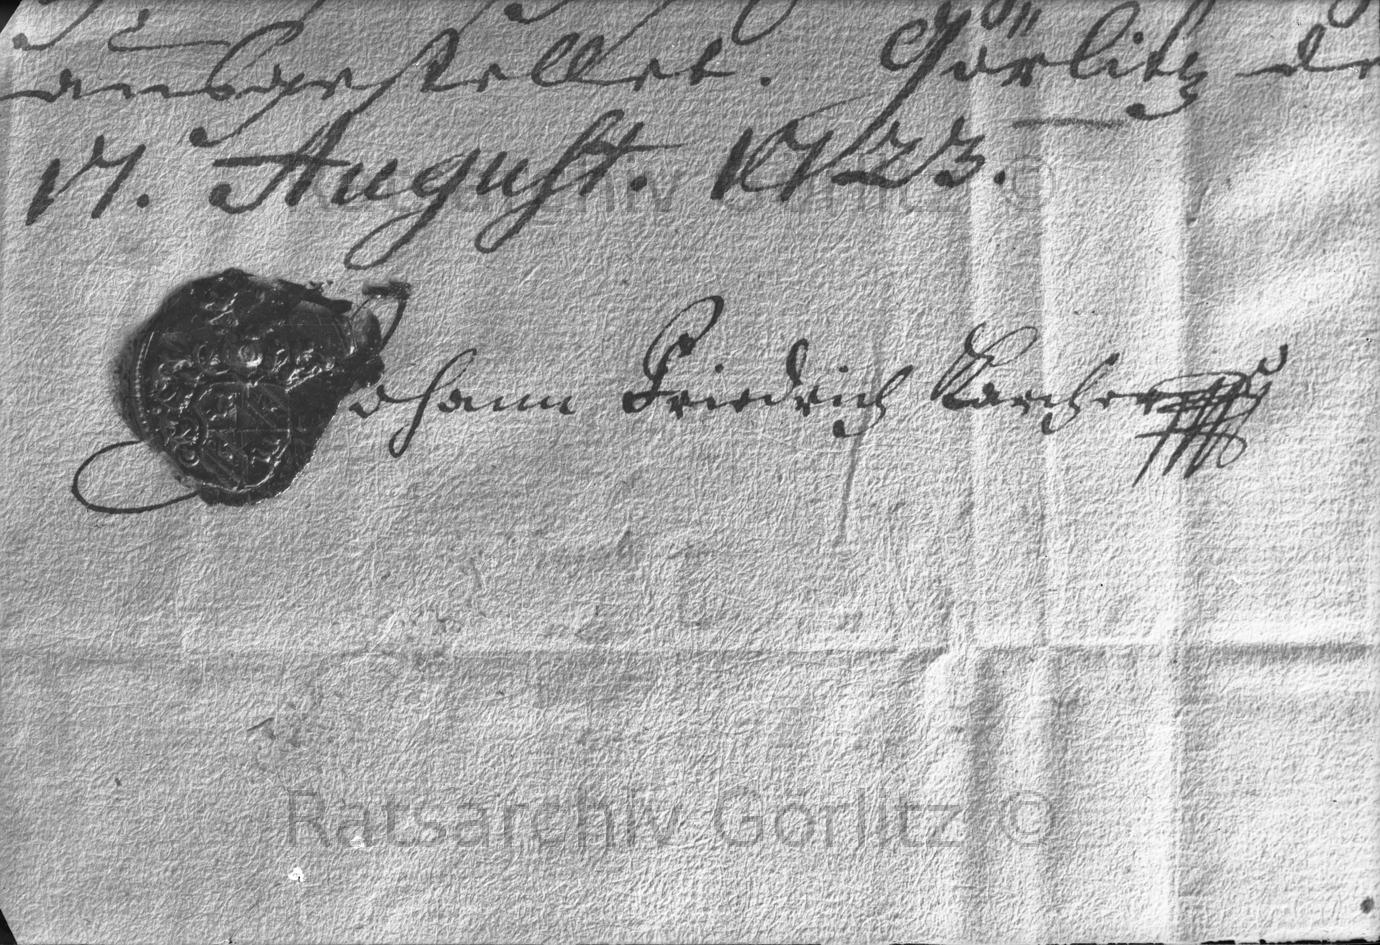 ausgestellet. Görlitz de
17. August. 1723.
Johann Friedrich Karcher
Ratsarchiv Görlitz ©
Ratsarchiv Görlitz ©